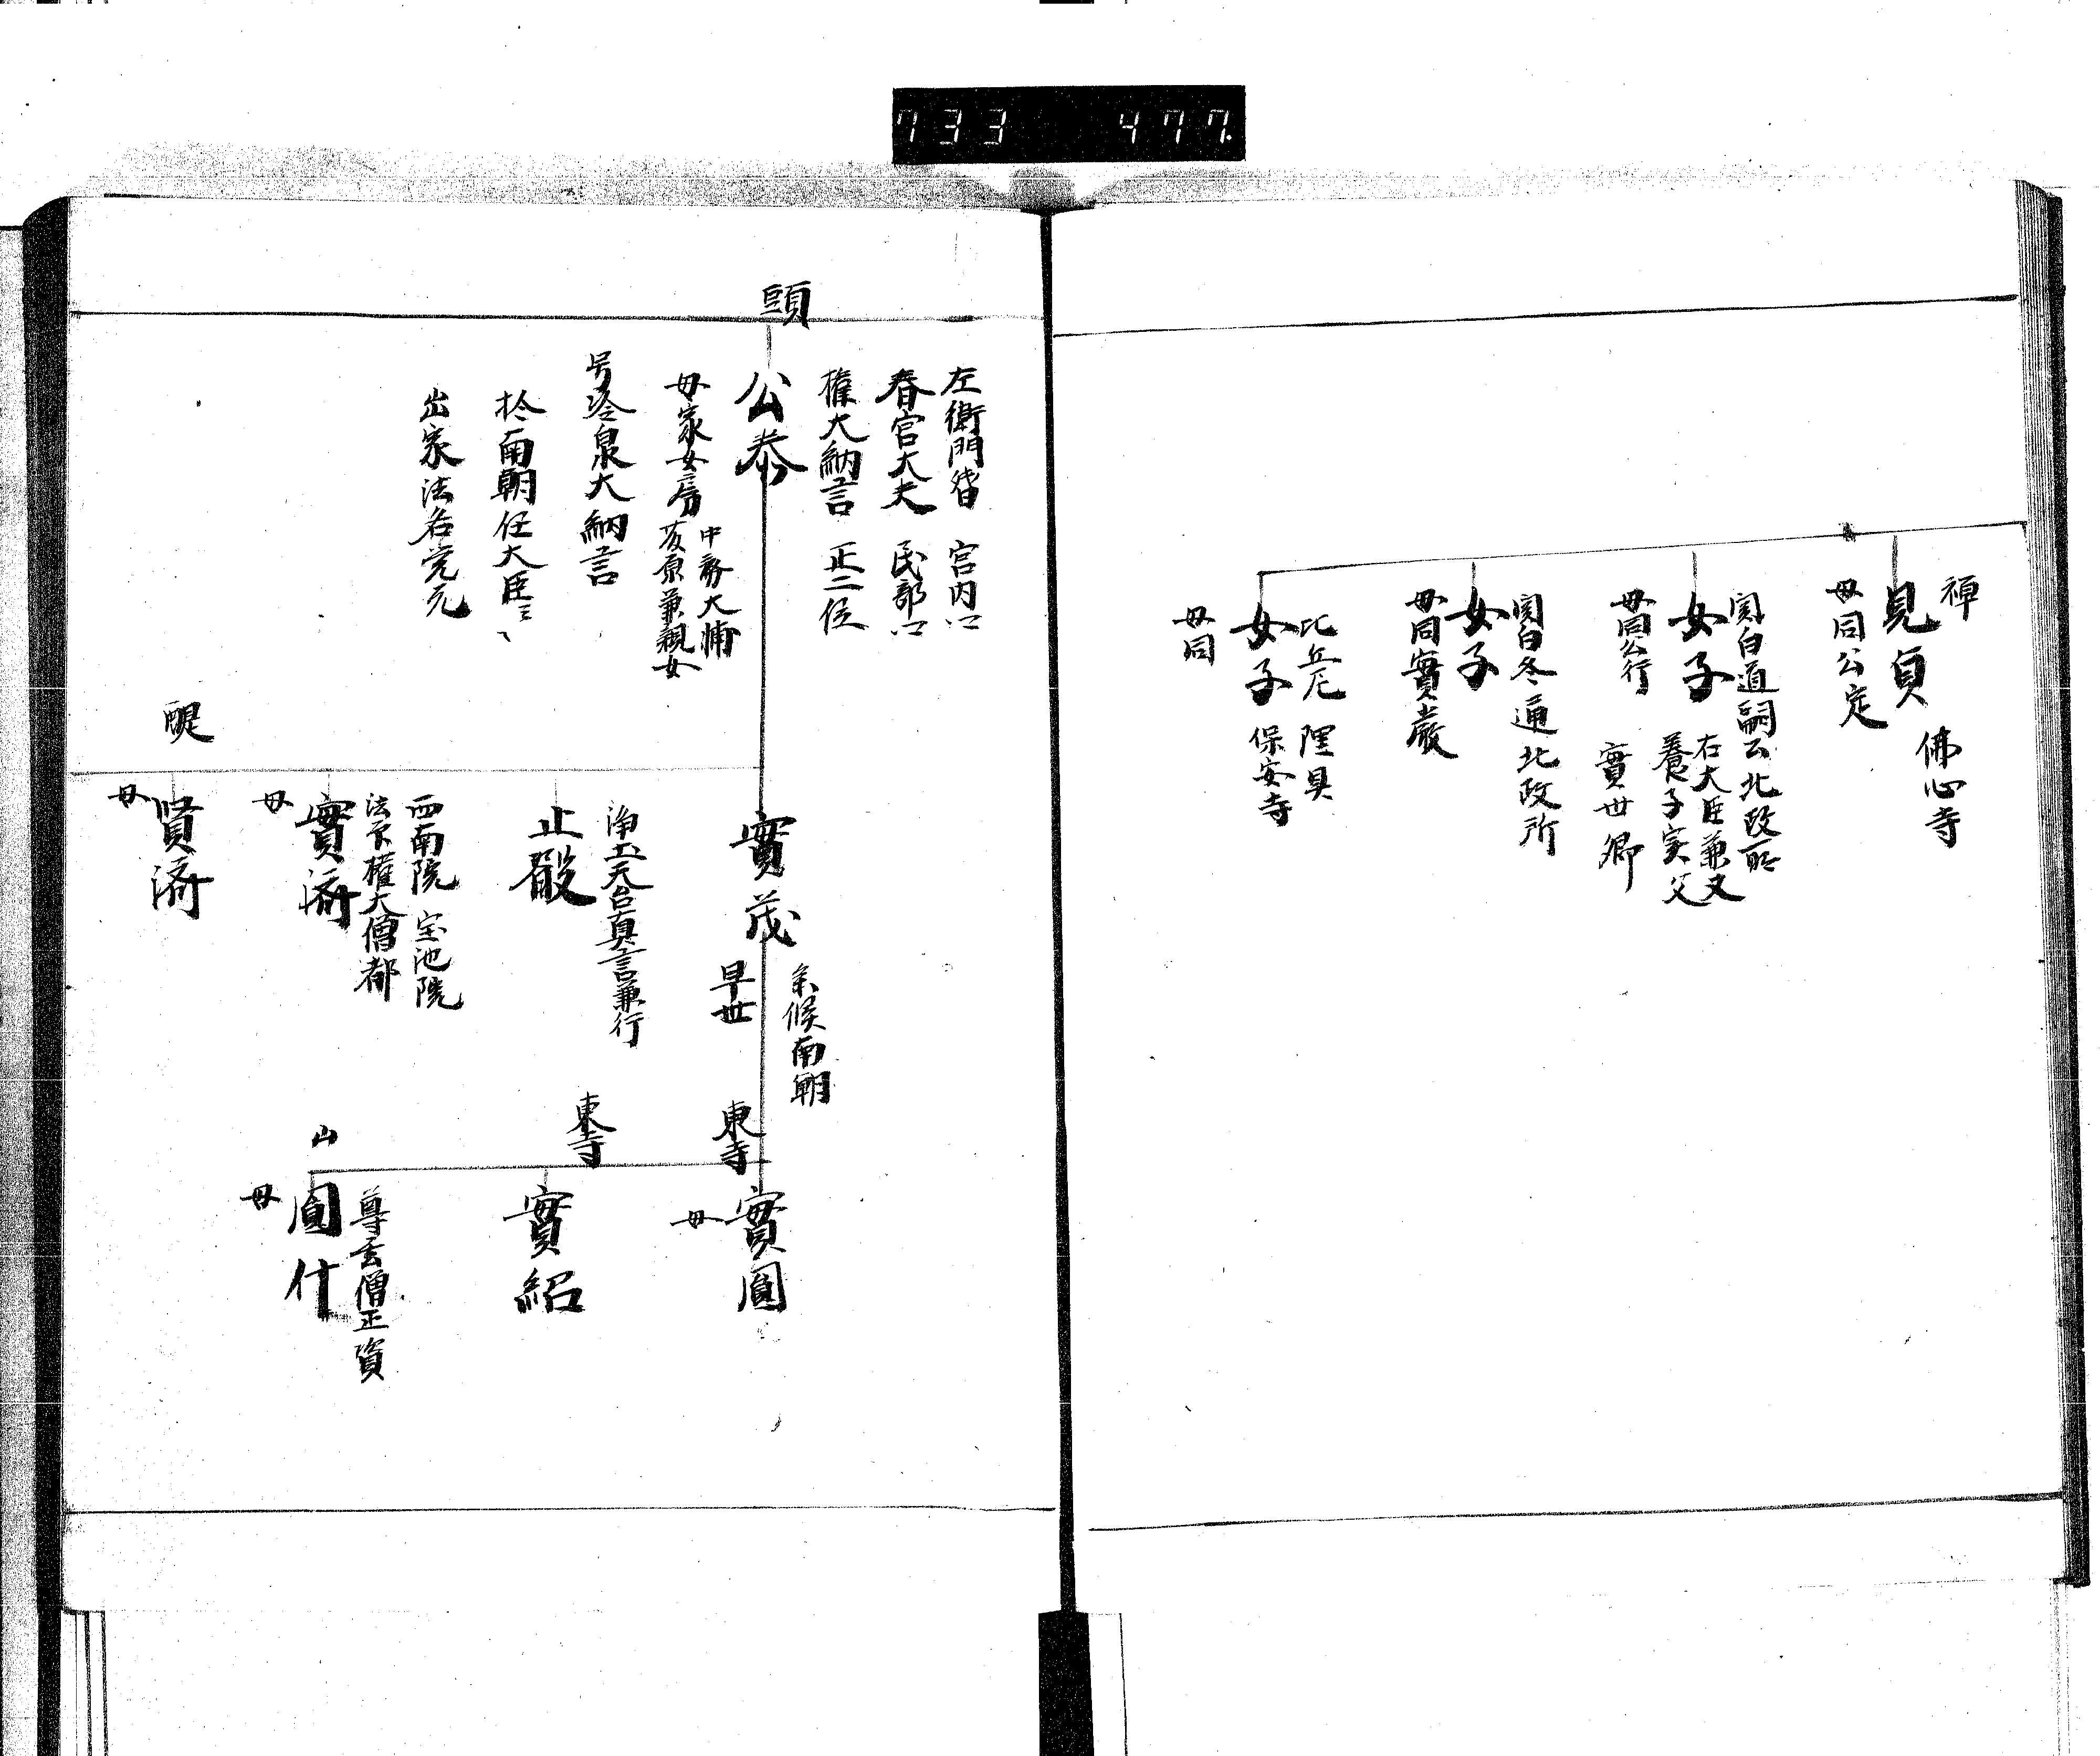 733 477.
禅
見貞
佛心寺
母同公定
関白道嗣公北政所
女子
右大臣兼又
養子実父
實世卿
母同公行
関白冬通北政所
女子
母同實嚴
比丘尼 理具
女子
保安寺
母同
頭
左衛門督 宮内卩
春宮大夫 民部卩
権大納言 正二位
公泰
母家女房
中務大輔
藤原兼親女
号冷泉大納言
於南朝任大臣云々
出家法名覚元
實茂
参候南朝
早世
浄土天台真言兼行
止嚴
西南院 宝池院
法印権大僧都
實済
母
醍
賢済
母
東寺
實圓
母
東寺
實紹
山
尊玄僧正資
圓什
母